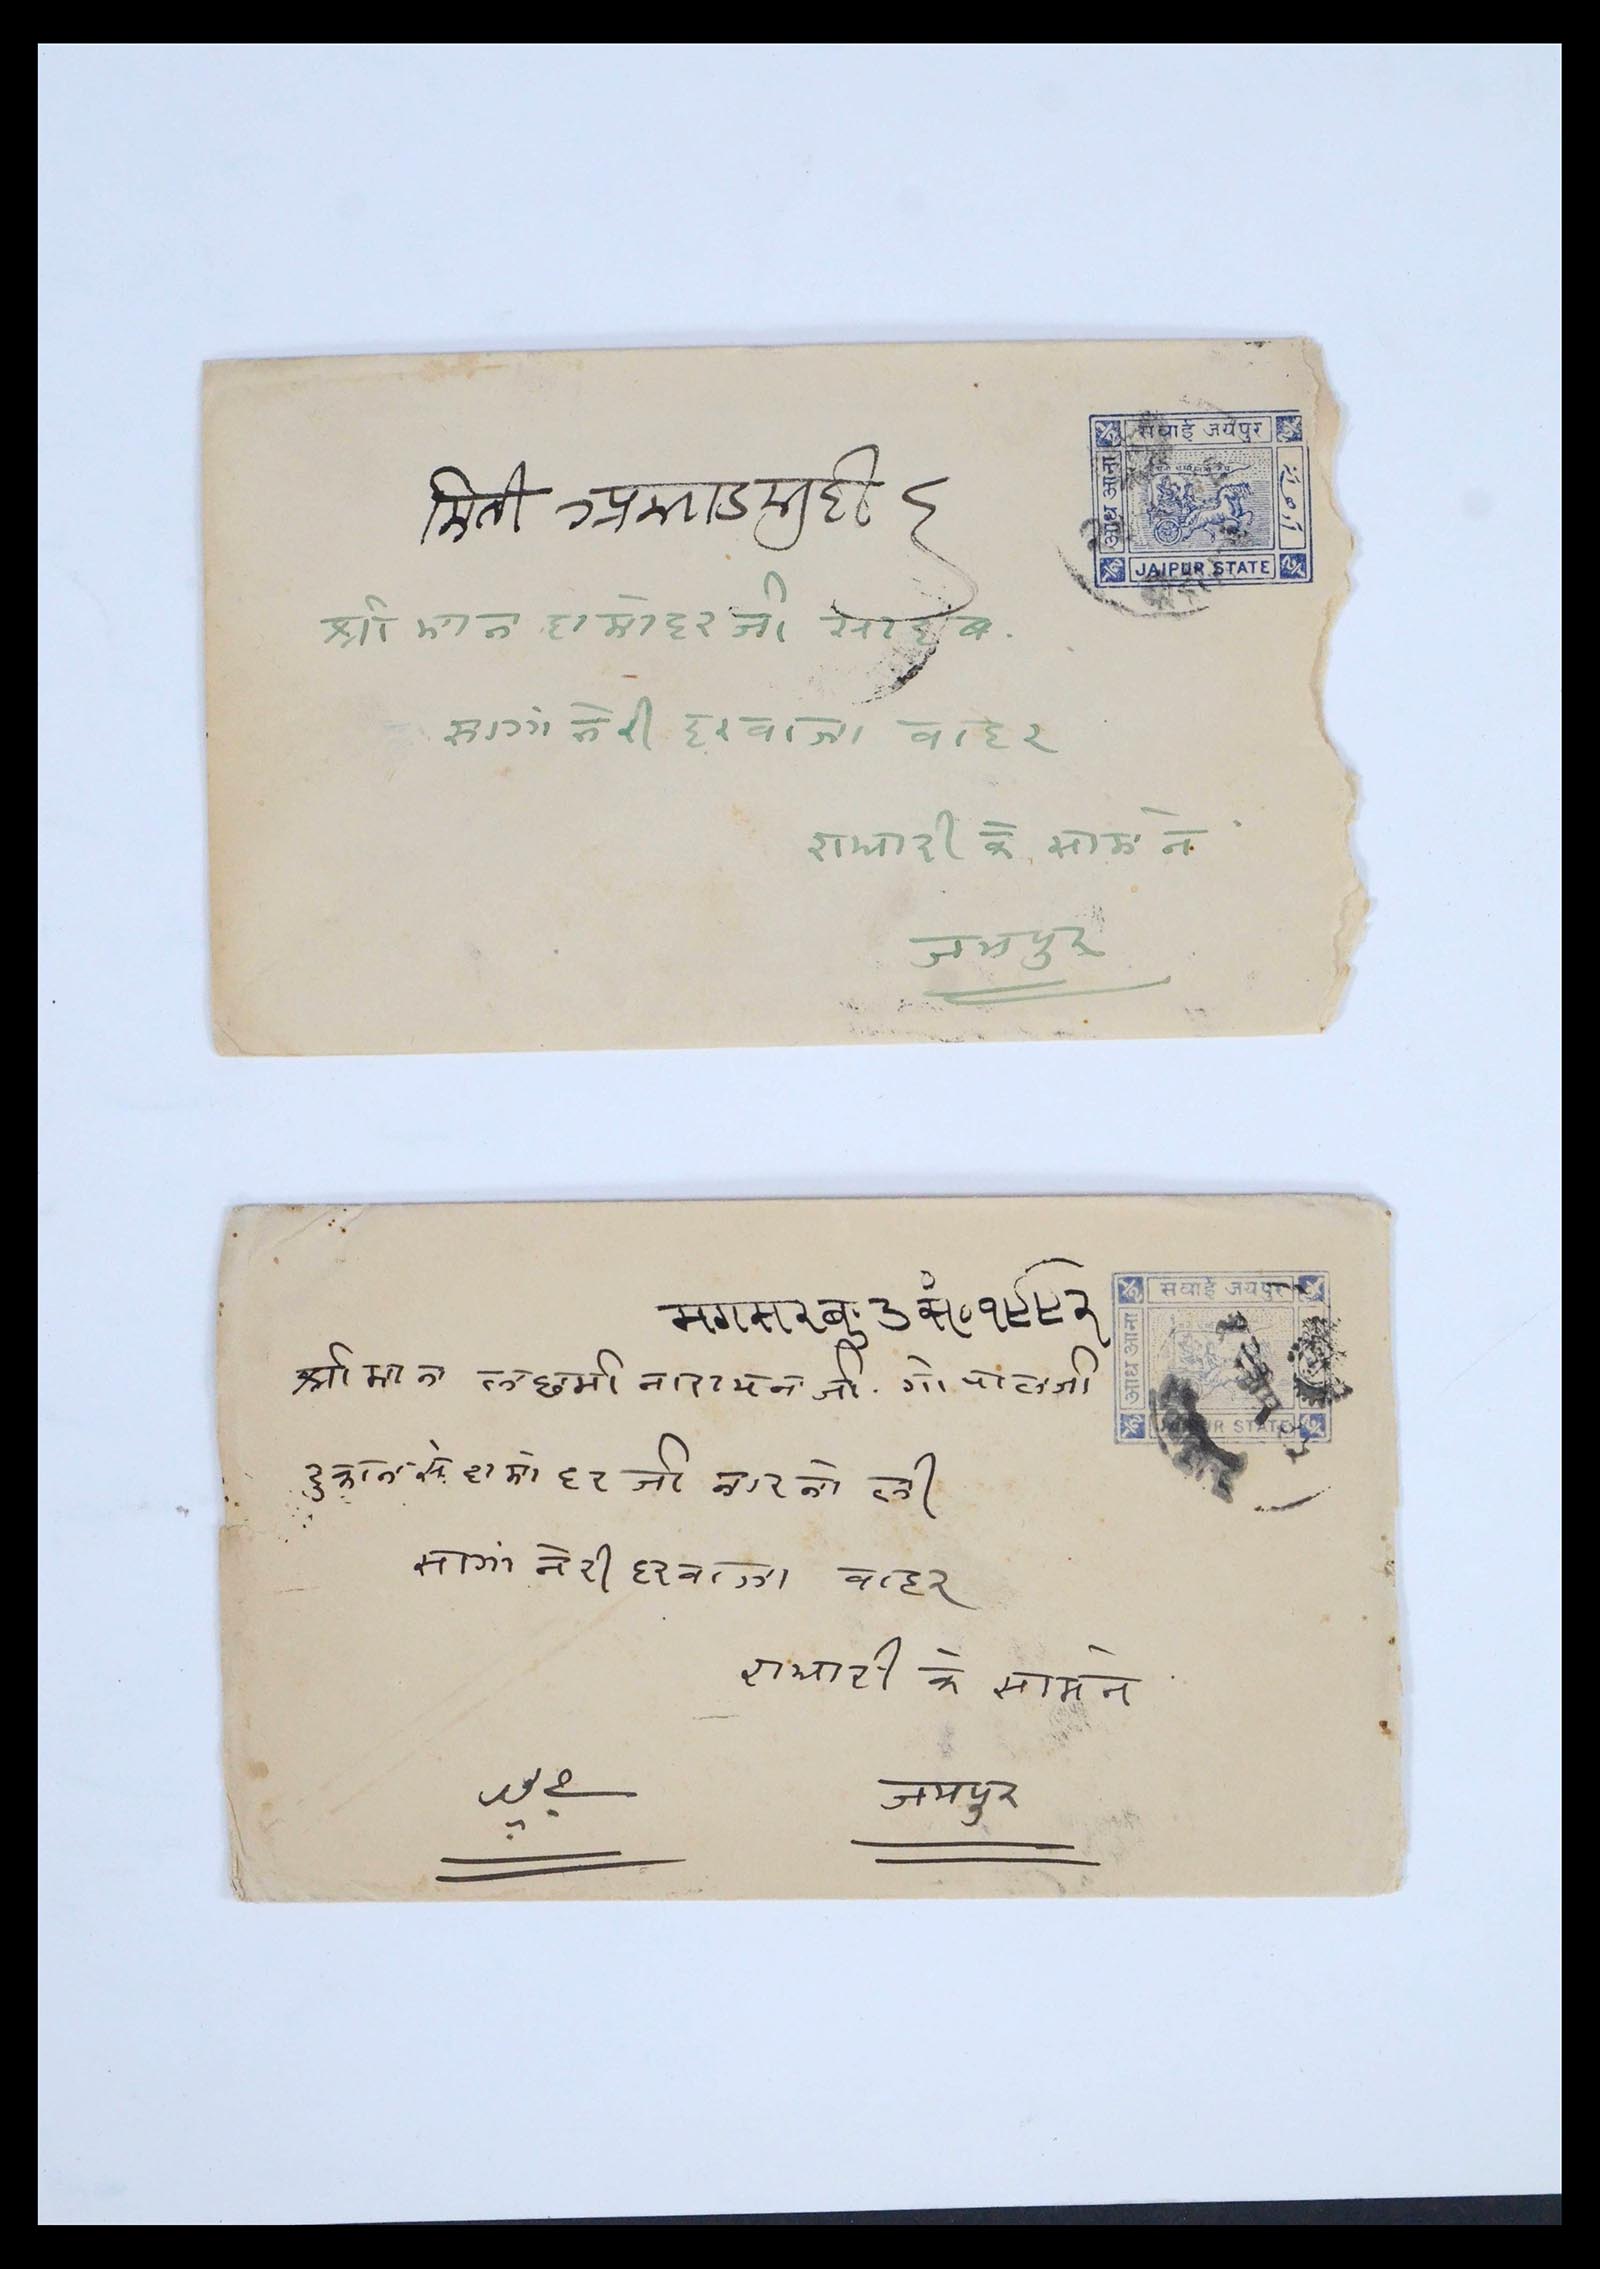 सवाई जयपुर
आध आना
JAIPUR STATE
मिती अप्रसाड सुदी ६
श्री मान दामोदर जी साहब.
सागांनेरी दरवाजा वाहर
के सामने
जयपुर
सवाई जयपुर
आध आना
JAIPUR STATE
मगसर बु: ३ सं० १९९२
श्री मान लछमी नारायन जी. गोपालजी
दुकान से दामोदर जी नारनोली
सागांनेरी दरवाजा वाहर
के सामने
جےپور
जयपुर